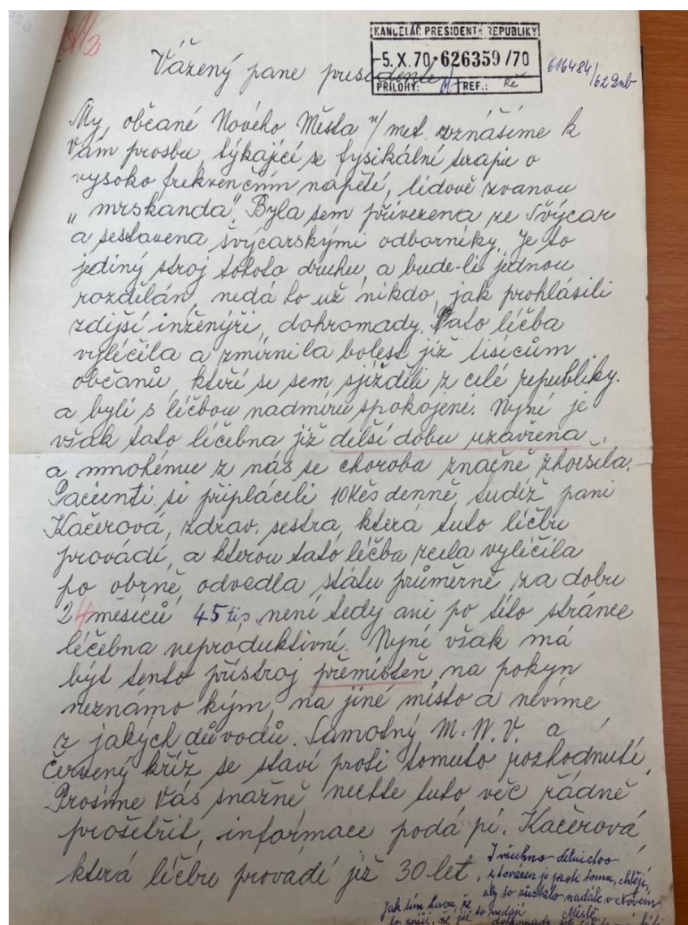 KANCELÁŘ PRESIDENTA REPUBLIKY
-5. X. 70 * 626359 /70
PŘÍLOHY: TREF.:
616484/62
Vážený pane presidente!
My, občané Nového Města n/met. vznášíme k
Vám prosbu, týkající se fysikální terapie o
vysoko frekvenčním napětí, lidově zvanou
"mrskanda". Byla sem přivezena ze Švýcar
a sestavena švýcarskými odborníky. Je to
jediný stroj tohoto druhu, a bude-li jednou
rozdělán, nedá to už nikdo, jak prohlásili
zdejší inženýři, dohromady. Tato léčba
vyléčila a zmírnila bolest již tisícům
občanů, kteří se sem sjížděli z celé republiky.
a byli s léčbou nadmíru spokojeni. Nyní je
však tato léčebna již delší dobu uzavřena
a mnohému z nás se choroba značně zhoršila.
Pacienti si připláceli 10 Kčs denně, tudíž paní
Kačerová, zdrav. sestra, která tuto léčbu
provádí, a kterou tato léčba zcela vyléčila
po obrně, odvedla státu průměrně za dobu
24 měsíců 45 tis. není tedy ani po této stránce
léčebna neproduktivní. Nyní však má
být tento přístroj přemístěn, na pokyn
neznámo kým, na jiné místo a nevíme
z jakých důvodů. Samotný M.N.V. a
Červený kříž se staví proti tomuto rozhodnutí.
Prosíme Vás snažně nechte tuto věc řádně
prošetřit, informace podá pí. Kačerová,
která léčbu provádí již 30 let.
I všechno dělnictvo
z továren je proti tomu, chtějí,
aby to zůstalo nadále v Novém
Městě.